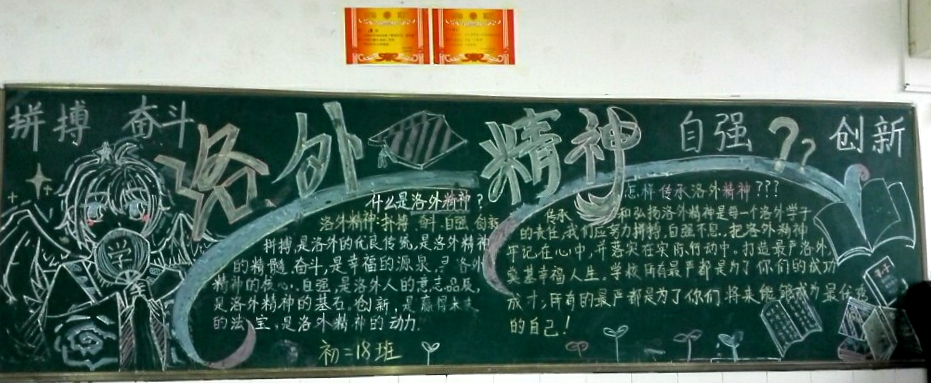 拼搏 奋斗 洛外 精神 自强 ?? 创新
什么是洛外精神?
洛外精神:拼搏、 自强、创新
拼搏,是洛外的优良传统,是洛外精神
的精髓.奋斗,是幸福的源泉,是洛外
精神的核心.自强,是洛外人的意志品质,
是洛外精神的基石.创新,是赢得未来
的法宝,是洛外精神的动力.
初二18班
学
怎样传承洛外精神???
传承 和弘扬洛外精神是每一个洛外学子
的责任,我们应努力拼搏,自强不息..把洛外精神
牢记在心中,并落实在实际行动中.打造最严洛外,
奠基幸福人生.学校所有最严都是为了你们的成功
成才;所有的最严都是为了你们将来能够成为最优秀
的自己!